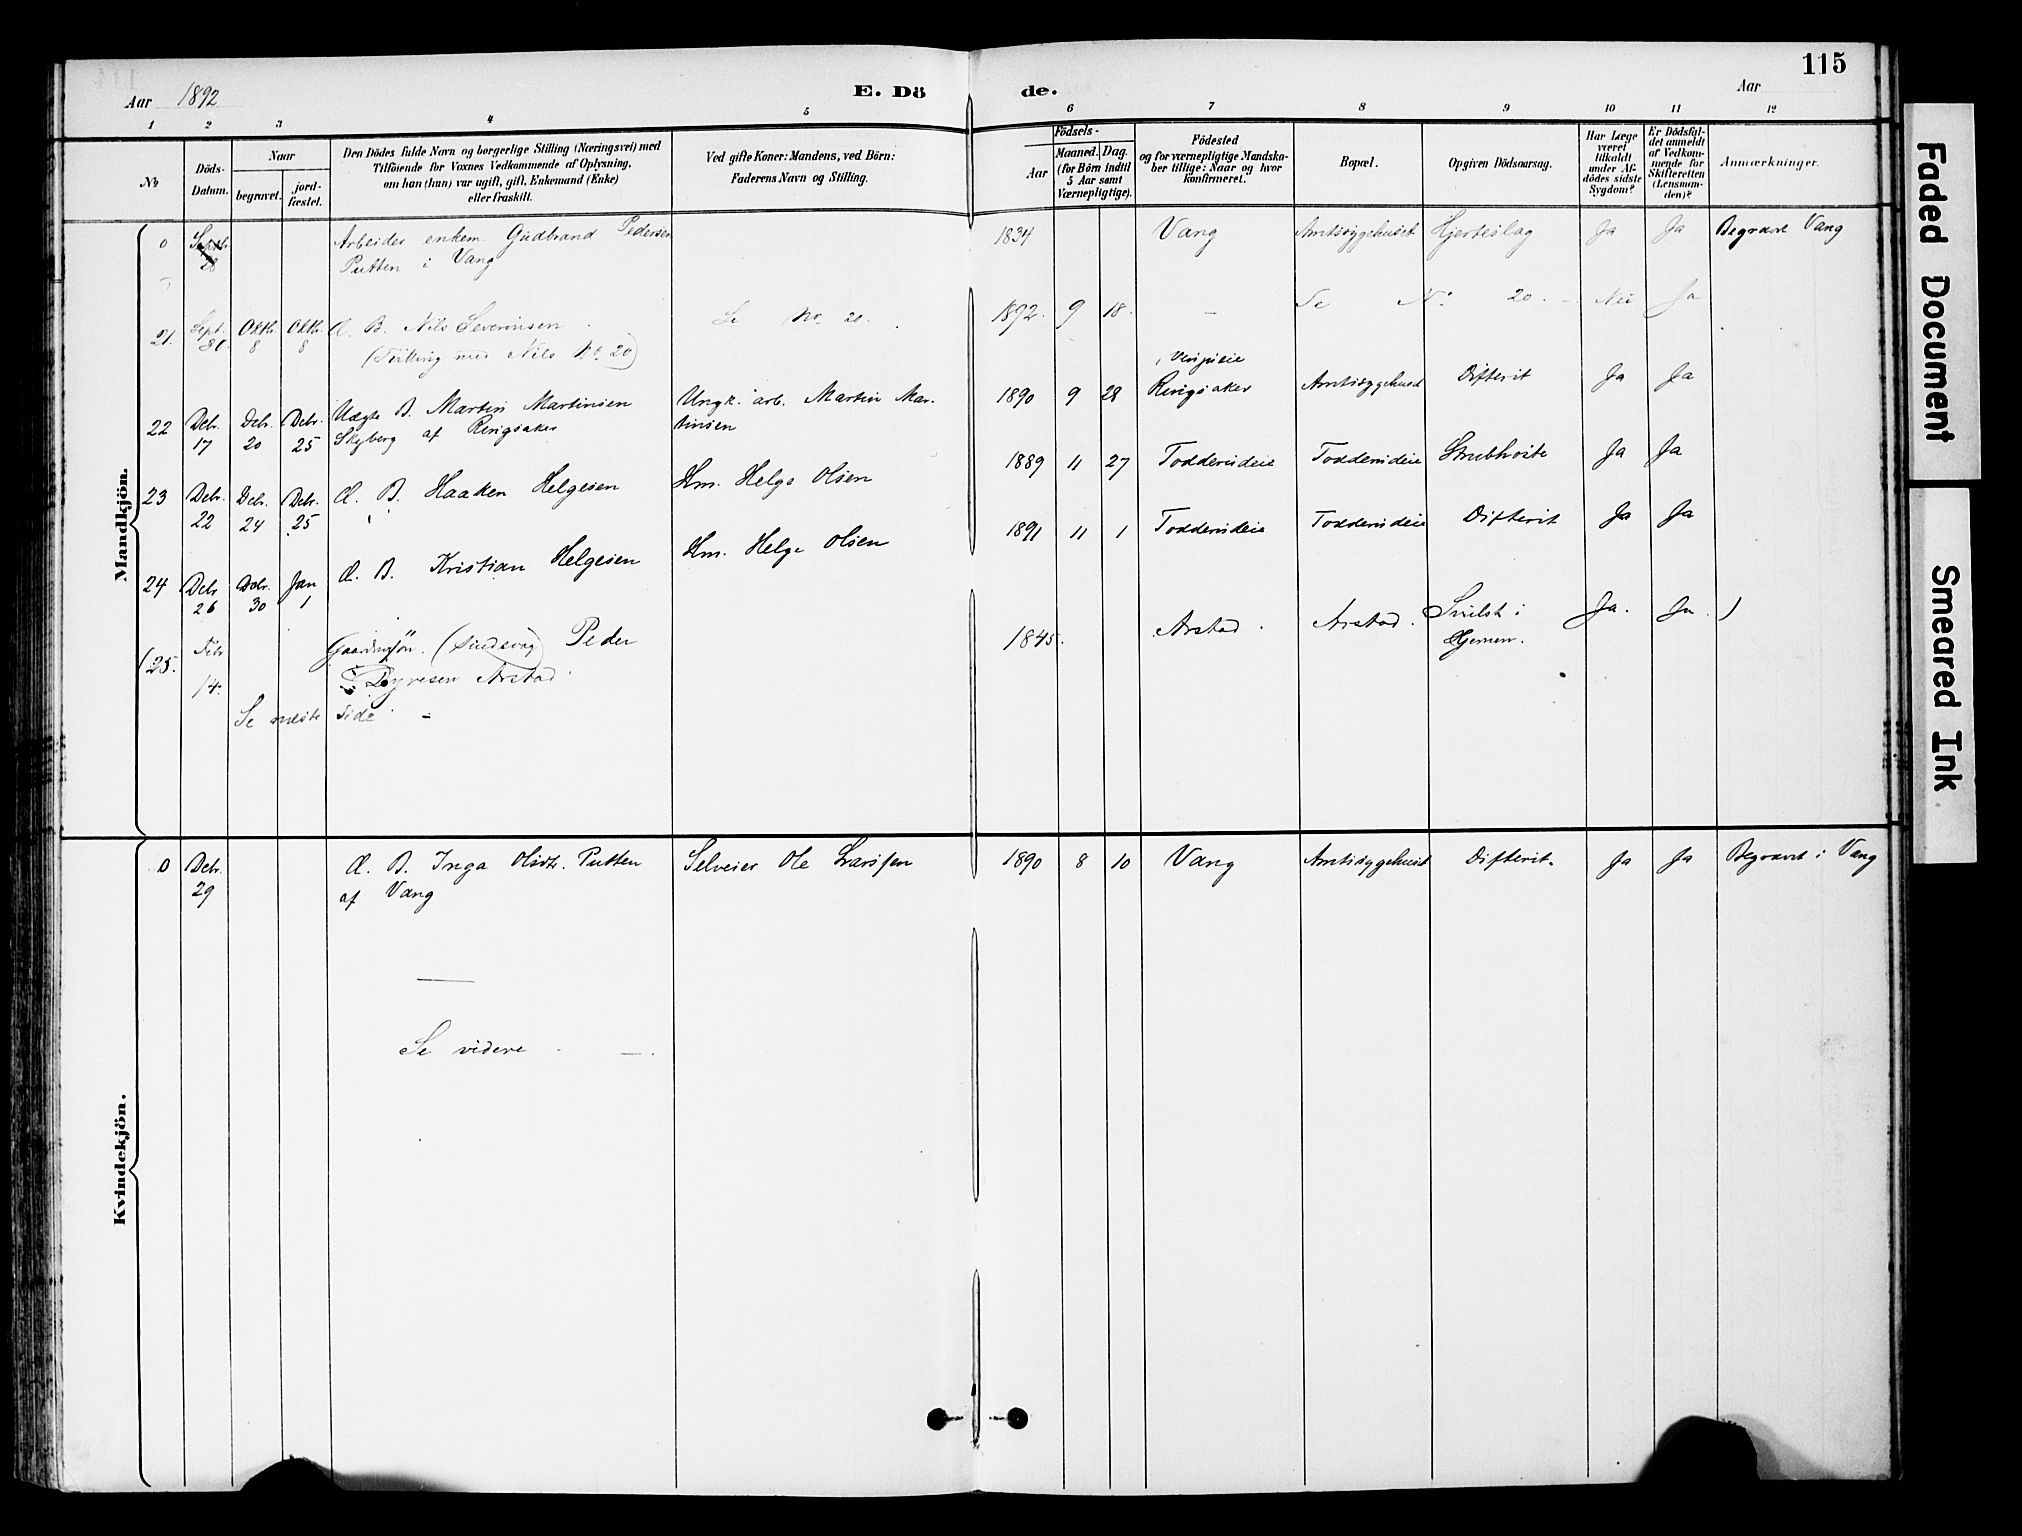 115
Aar 1892
E. Döde.
Aar
1 2 3 4 5 6 7 8 9 10 11 12
No
Döds-Datum.
Naar
begravet.
jord-fæstet.
Den Dödes fulde Navn og borgerlige Stilling (Næringsvei) med
Tilföiende for Voxnes Vedkommende af Oplysning,
om han (hun) var ugift, gift, Enkemand (Enke)
eller fraskilt.
Ved gifte Koner: Mandens, ved Börn:
Faderens Navn og Stilling.
Födsels-
Aar
Maaned. Dag.
(for Börn indtil
5 Aar samt
Værnepligtige).
Födested
og for værnepligtige Mandska-
ber tillige: Naar og hvor
konfirmeret.
Bopæl.
Opgiven Dödsaarsag.
Har Læge
været
tilkaldt
under Af-
dödes sidste
Sygdom?
Er Dödsfal-
det anmeldt
af Vedkom-
mende for
Skifteretten
(Lensman-
den)?
Anmærkninger.
Mandkjön.
0 Septbr. 28 Arbeider enkem. Gudbrand Pedersen 1834 Vang Amtssygehuset Hjerteslag Ja Ja Begravet Vang
Putten i Vang
21. Sept. 30. Oktb. 8 Oktb. 8 Æ. B. Nils Severinsen Se No. 20. 1892. 9 18. – Se No 20. Nei Ja
(Tvilling med Nils No. 20)
22 Debr. 17 Debr. 20 Debr. 25 Uægte B. Martin Martinsen Ungk. arb. Martin Mar- 1890 9 28 Ringsaker Amtssygehuset Difterit Ja Ja
Skyberg af Ringsaker tinsen
23 Debr. 22 Debr. 24 Debr. 25 Æ. B. Haaken Helgesen Hm. Helge Olsen 1889 11 27 Todderudeie Todderudeie Strubhoste Ja Ja
24 Debr. 26 Debr. 30 Jan 1 Æ. B. Kristian Helgesen Hm. Helge Olsen 1891 11 1 Todderudeie Todderudeie Difterit Ja Ja
(25. Febr 14. (Sindsvag) Peder 1845. Arstad. Arstad. i Ja. Ja. )
Dyresen Arstad Hjernen.
Se næste side –
Kvindekjön.
0 Debr. 29 Æ. B. Inga Olsdtr. Putten Selveier Ole Larsen 1890 8 10 Vang Amtssygehuset Difterit. Ja Ja Begravet i Vang
af Vang
Se videre –
Faded Document
Smeared Ink